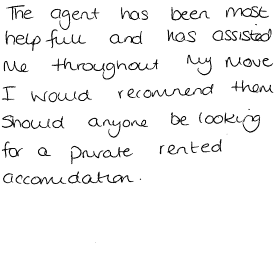 The agent has been most
helpfull and has assisted
me throughout my move
I would recommend them
should anyone be looking
for a private rented
accomudation.